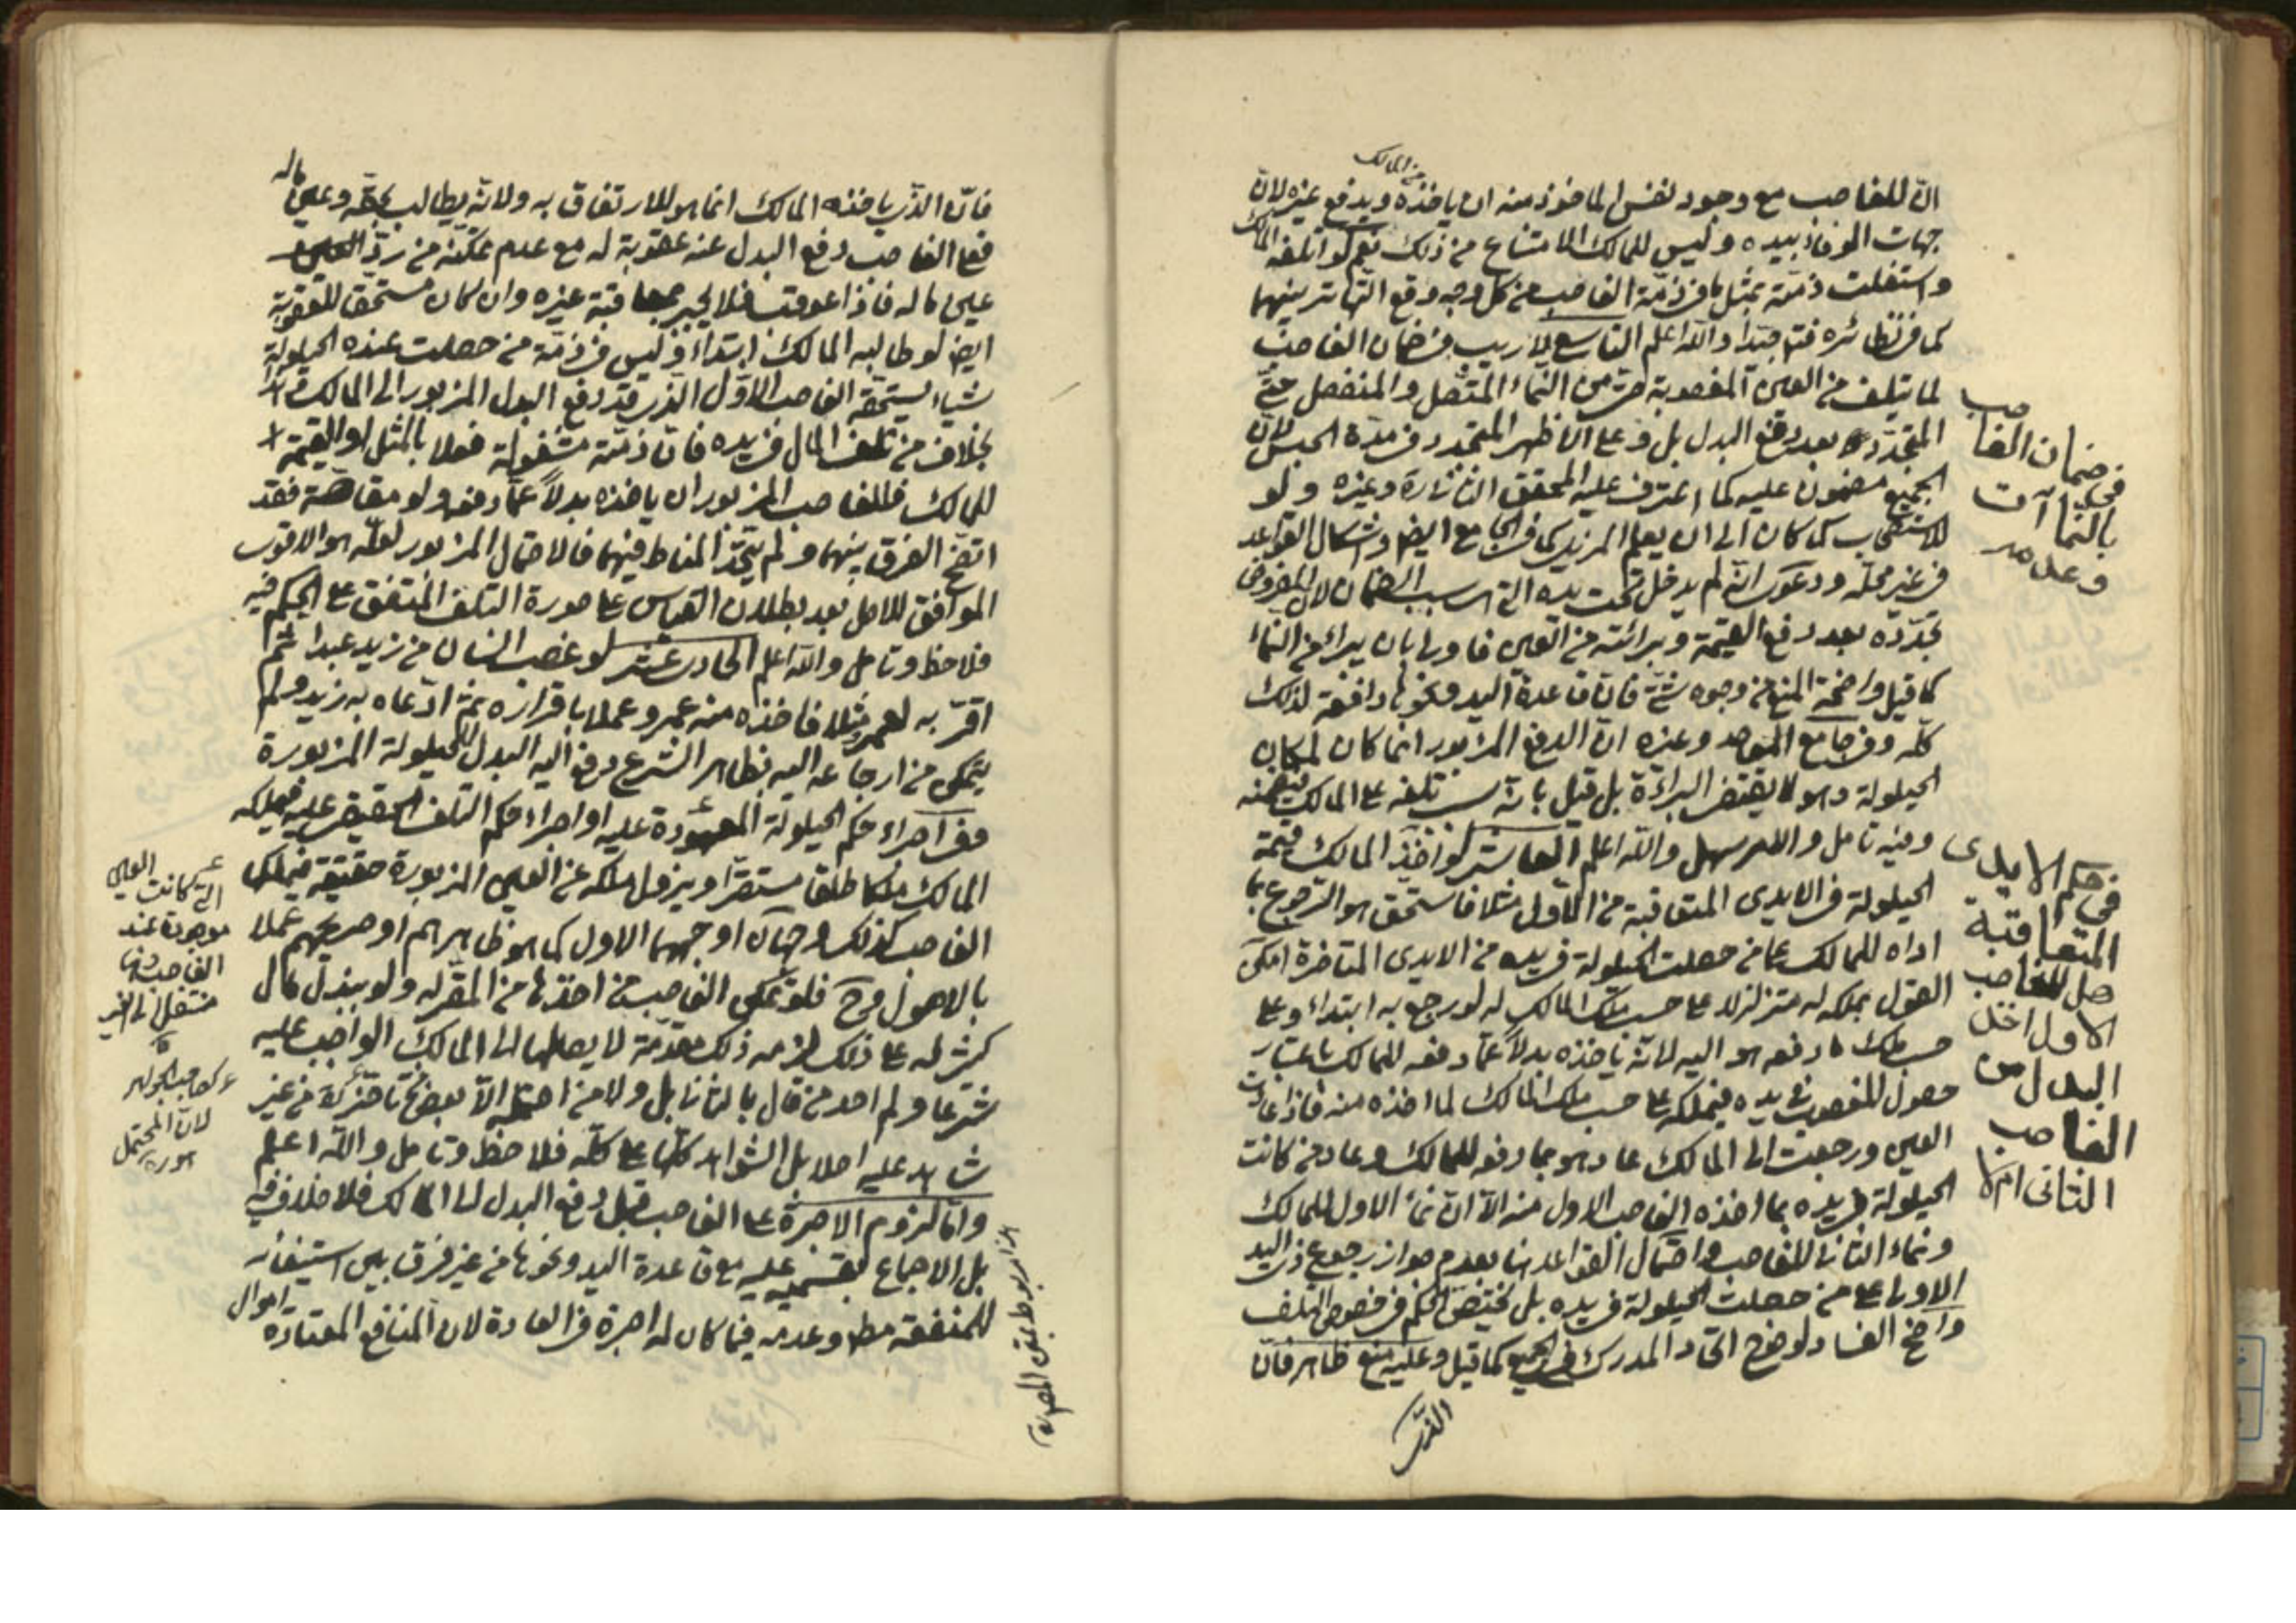 من المالك
ان للغاصب مع وجود نفس المأخوذ منه ان يأخذه ويدفع غيره لان
جهات الوفاء بيده وليس للمالك الامتناع من ذلك نعم لو اتلفه المالك
واشتغلت ذمته بمثل ما في ذمة الغاصب من كل وجه وقع التهاتر بينهما
كما في نظائره فتأمل جيدا والله اعلم التاسع لا ريب في ضمان الغاصب
لما يتلف من العين المغصوبة حتى من النماء المتصل والمنفصل حتى
المتجدد بعد دفع البدل بل وعلى الاظهر المتجدد في مدة الحبس لان
الجميع مضمون عليه كما اعترف عليه المحقق الثاني تارة وغيره ولو
للاستصحاب كما كان الى ان يعلم المزيل كما في الجامع ايضا واشكال القواعد
في غير محله ودعوى انه لم يدخل تحت يده التي هي سبب الضمان لان المفروض
تجدده بعد دفع القيمة وبرائته من العين فاولى بان يبرأ من النماء
كما قيل واضحة المنع من وجوه شتى فان قاعدة اليد ونحوها دافعة لذلك
كله وفي جامع المقاصد وغيره ان الدفع المزبور انما كان لمكان
الحيلولة وهو لا يقتضي البراءة بل قيل بانه تلفه على المالك
وفيه تامل والامر سهل والله اعلم العاشر لو اخذ المالك قيمة
الحيلولة في الايدي المتعاقبة من الاول مثلا فاستحق هو الرجوع بما
اداه للمالك على من حصلت الحيلولة في يده من الايدي المتاخرة امكن
القول بملكه له متزلزلا على حسب ملك المالك له لو رجع به ابتداء وعلى
حسب ملك ما دفعه هو اليه لانه ياخذه بدلا عما دفعه للمالك باعتبار
حصول المغصوب في يده فيملكه على حسب ملك المالك لما اخذه منه فاذا عادت
العين ورجعت الى المالك عاد هو بما دفعه للمالك وعاد من كانت
الحيلولة في يده بما اخذه الغاصب الاول منه الا ان نماء الاول للمالك
ونماء الثاني للغاصب واحتمال القواعد هنا بعدم جواز رجوع ذي اليد
الاولى على من حصلت الحيلولة في يده بل تختص الحكم في خصوص التلف
واضح الفساد لوضوح اتحاد المدرك في الجميع كما قيل وعليه منع ظاهر فان
الذي
في ضمان الغاصب
بالنماآت
وعدمه
في حكم الايدى
المتعاقبة
هل للغاصب
الاول اخذ
البدل من
الغاصب
الثانى ام لا
فان الذي ياخذه المالك انما هو للارتفاق به ولانه يطالب بحقه وعين ماله
فعلى الغاصب دفع البدل عنه عقوبة له مع عدم تمكنه من رد العين
عين ماله فاذا عوقب فلا يجبر بمعاقبة غيره وان كان مستحقا للعقوبة
ايضا لو طالبه المالك ابتداء وليس في ذمة من حصلت عنده الحيلولة
شيئا يستحقه الغاصب الاول الذي قد دفع البدل المزبور الى المالك
بخلاف من تلف المال في يده فان ذمته مشغولة فعلا بالمثل او القيمة
للمالك فللغاصب المزبور ان ياخذه بدلا عما دفعه ولو مقاصة فقد
اتضح الفرق بينهما ولم يتحد المناط فيهما فالاحتمال المزبور لعله هو الاقرب
الموافق للاصل بعد بطلان القياس على صورة التلف المتفق على الحكم فيه
فلاحظ وتامل والله اعلم الحادى عشر لو غصب انسان من زيد عبدا ثم
اقر به لعمرو مثلا فاخذه منه عمرو عملا باقراره ثم ادعاه به زيد ولم
يتمكن من ارجاعه اليه بظاهر الشرع دفع اليه البدل للحيلولة المزبورة
وفي اجراء حكم الحيلولة المعهودة عليه او اجراء حكم التلف الحقيقي عليه فيملكه
المالك ملكا طلقا مستقرا ويزول ملكه عن العين المزبورة حقيقة فيملكها
الغاصب كذلك وجهان اوجههما الاول كما هو ظاهرهم او صريحهم عملا
بالاصول وح فلو تمكن الغاصب من اخذها من المقر له ولو ببذل مال
كثير له على ذلك لزمه ذلك مقدمة لايصالها الى المالك الواجب عليه
شرعا ولم احد من قال بالثاني بل ولا من احتمله الا بعض متاخري من غير
شاهد عليه اصلا بل الشواهد كلها على كله فلاحظ وتامل والله اعلم
واما لزوم الاجرة على الغاصب قبل دفع البدل الى المالك فلا خلاف فيه
بل الاجماع بقسميه عليه مع قاعدة اليد ونحوها من غير فرق بين استيفائه
للمنفعة مطلقا وعدمه فيما كان له اجرة في العادة لان المنافع المعتادة اموال
العين
التي كانت
موجودة عند
الغاصب
كصاحب الجواهر
لان المحتمل
هو ره